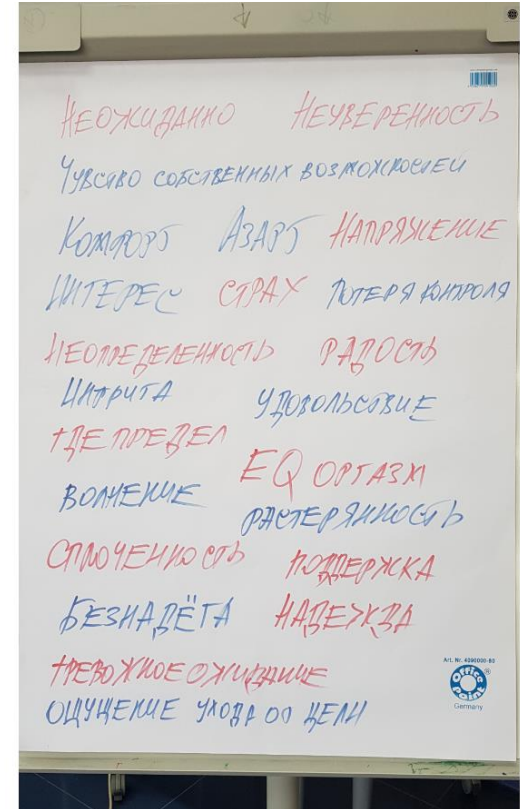 Неожиданно Неуверенность
Чувство собственных возможностей
Комфорт Азарт Напряжение
Интерес Страх Потеря контроля
Неопределенность Радость
Интрига Удовольствие
Где предел
EQ оргазм
Волнение
Растерянность
Сплоченность Поддержка
Безнадёга Надежда
Тревожное ожидание
Ощущение ухода от цели
Art. Nr. 4090000-80
Office Point ®
Germany